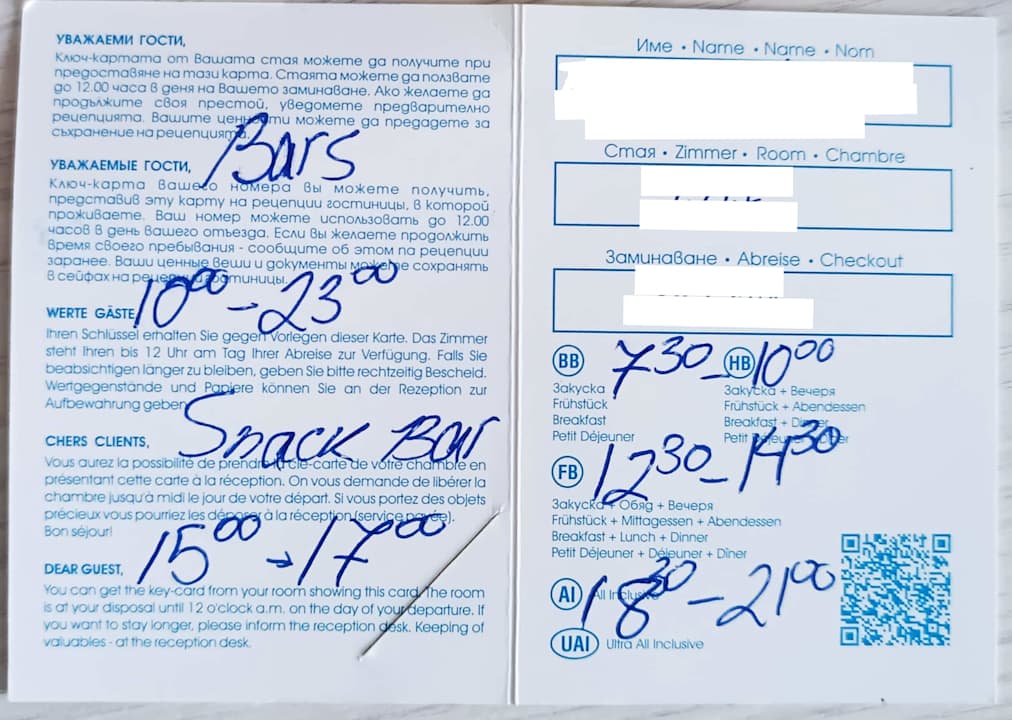 УВАЖАЕМИ ГОСТИ,
Ключ-картата от Вашата стая можете да получите при
предоставяне на тази карта. Стаята можете да ползвате
до 12.00 часа в деня на Вашето заминаване. Ако желаете да
продължите своя престой, уведомете предварително
рецепцията. Вашите ценности можете да предадете за
съхранение на рецепцията.
Bars
УВАЖАЕМЫЕ ГОСТИ,
Ключ-карта вашего номера вы можете получить,
представив эту карту на рецепции гостиницы, в которой
проживаете. Ваш номер можете использовать до 12.00
часов в день вашего отъезда. Если вы желаете продолжить
время своего пребывания - сообщите об этом на рецепции
заранее. Ваши ценные вещи и документы можете сохранять
в сейфах на рецепции гостиницы.
10⁰⁰ - 23⁰⁰
WERTE GÄSTE,
Ihren Schlüssel erhalten Sie gegen Vorlegen dieser Karte. Das Zimmer
steht Ihren bis 12 Uhr am Tag Ihrer Abreise zur Verfügung. Falls Sie
beabsichtigen länger zu bleiben, geben Sie bitte rechtzeitig Bescheid.
Wertgegenstände und Papiere können Sie an der Rezeption zur
Aufbewahrung geben.
Snack Bar
CHERS CLIENTS,
Vous aurez la possibilité de prendre la clé-carte de votre chambre en
présentant cette carte à la réception. On vous demande de libérer la
chambre jusqu'à midi le jour de votre départ. Si vous portez des objets
précieux vous pourriez les déposer à la réception (service payée).
Bon séjour!
15⁰⁰ → 17⁰⁰
DEAR GUEST,
You can get the key-card from your room showing this card. The room
is at your disposal until 12 o'clock a.m. on the day of your departure. If
you want to stay longer, please inform the reception desk. Keeping of
valuables - at the reception desk.
Име • Name • Name • Nom
Стая • Zimmer • Room • Chambre
Заминаване • Abreise • Checkout
BB 7³⁰ - HB 10⁰⁰
Закуска Закуска + Вечеря
Frühstück Frühstück + Abendessen
Breakfast Breakfast + Dinner
Petit Déjeuner Petit Déjeuner + Dîner
FB 12³⁰ - 14³⁰
Закуска + Обяд + Вечеря
Frühstück + Mittagessen + Abendessen
Breakfast + Lunch + Dinner
Petit Déjeuner + Déjeuner + Dîner
AI All Inclusive 18³⁰ - 21⁰⁰
UAI Ultra All Inclusive